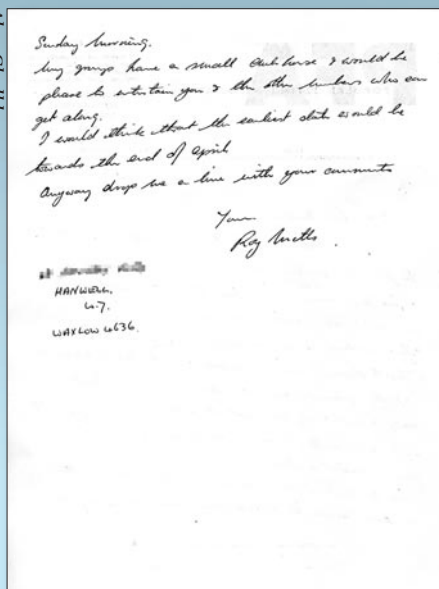 Sunday morning.
My group have a small club house & would be
please to entertain you & the other members who can
get along.
I would think that the earliest date would be
towards the end of April
Anyway drop me a line with your comments
Yours
Roy
HANWELL.
W.7.
WAXLOW 4636.